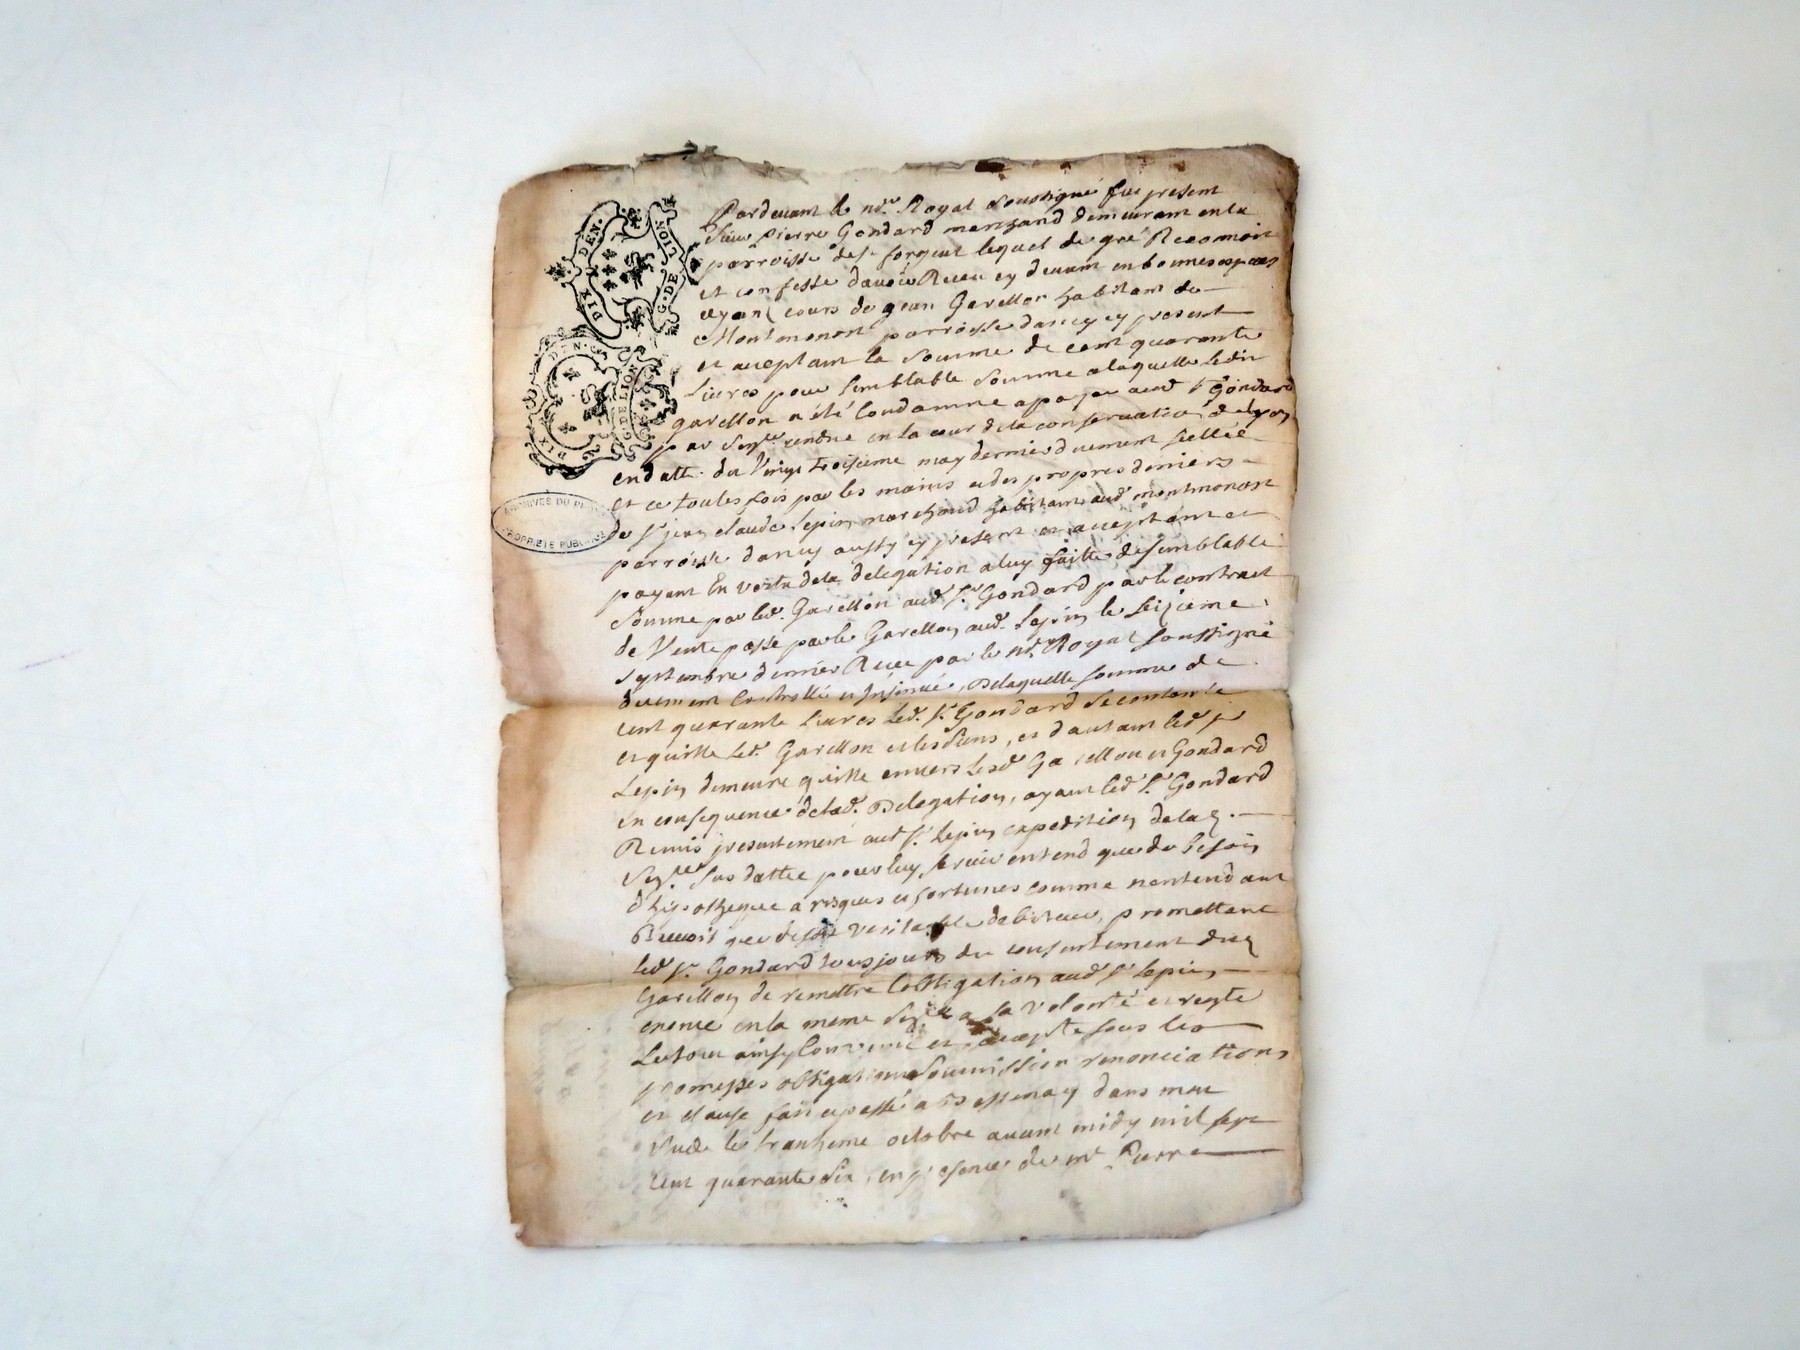 DIX DEN.
G. DE LION
DIX DEN.
G. DE LION
ARCHIVES DU
PROPRIÉTÉ PUBLIQUE
Pardevant le no.re Royal soussigné fut present
Sieur pierre Gondard marchand demeurant en la
parroisse de st forgeux lequel de gré Reconnoit
et confesse d'avoir Receu cy devant en bonnes especes
ayant cours de jean Garellon habitant de
Montmonon parroisse dancy cy present
et aceptant la somme de cent quarante
Livres pour semblable somme a laquelle ledit
garellon a été Condamne a payer aud. Sr Gondard
par Sent.ce rendue en la cour de la conservation de lyon
en datte du Vingt troisieme may dernier duement scellée
et ce toutes fois par les mains et des propres deniers
de Sr jean claude lepin marchand habitant aud. montmonon
parroisse dancy aussy cy present et acceptant et
payant En vertu de la delegation a luy faitte de semblable
Somme par led. Garellon aud. Sr Gondard par le contract
de Vente passé par le Garellon aud. Lepin le seizieme
septembre dernier Receu par le no.re Royal soussigné
duement Controllé et Insinué, De laquelle somme de
cent quarante Livres led. Sr Gondard se contente
et quitte led. Garellon et les siens, et dautant led. Sr
Lepin demeure quitte envers lesd. Garellon et Gondard
en consequence de lad. Delegation, ayant led. Sr Gondard
Remis presentement aud. Sr Lepin expedition de lad.
Sent.ce sus dattée pour luy servir en tend que de besoin
d'hipotheque a risques et fortunes comme nentendant
Recevoir que de son veritable debiteur, promettant
led. Sr Gondard tousjours du consentement dud.
Garellon de remettre l'obligation aud. Sr lepin
enoncé en la meme Sent.ce a sa volonté et reqte
Le tout ainsy Convenu et accepté sous les
promesses obligations soumission renonciations
et clause fait et passé a Bessenay dans mon
etude le trantieme octobre avant midy mil sept
cent quarante six, en presence de mr Pierre